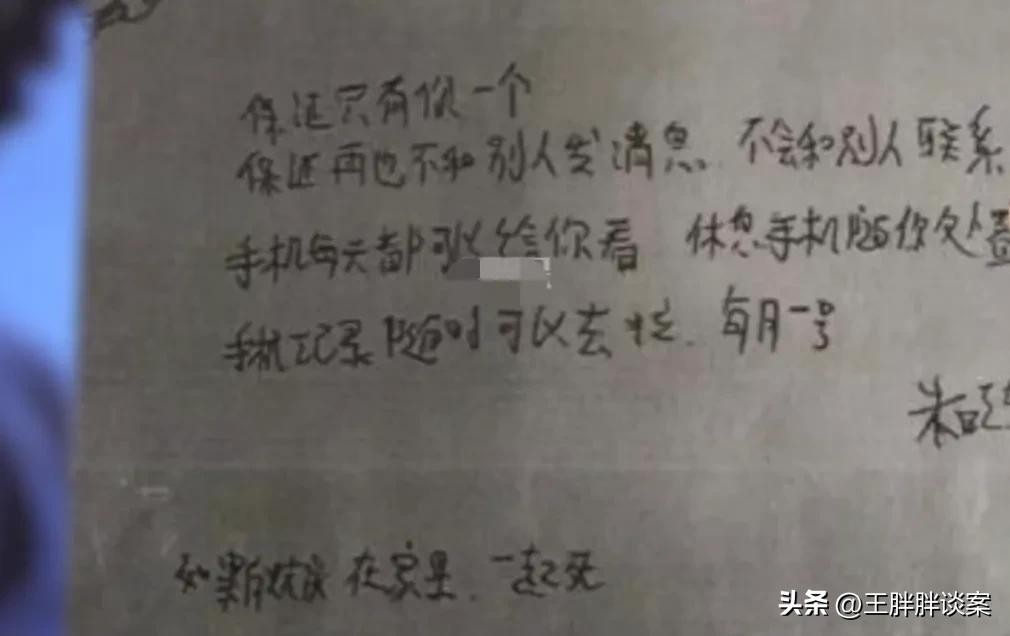 保证只有你一个
保证再也不和别人发消息 不会和别人联系
手机每天都可以给你看 休息手机随你处置
手机记录随时可以去 每月一号
朱
如果 在家里 一起死
头条 @王胖胖谈案